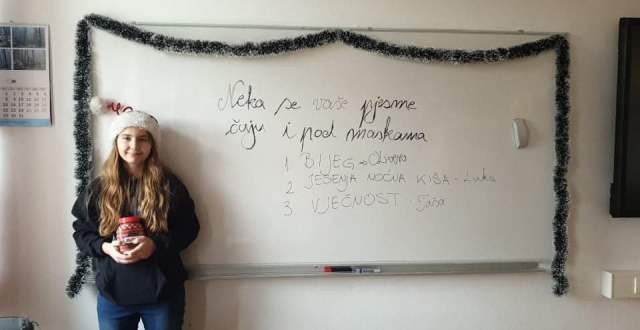 Neka se vaše pjesme
čuju i pod maskama
1 BIJEG -
2 JESENJA NOĆNA KIŠA - Luka
3 VJEČNOST -